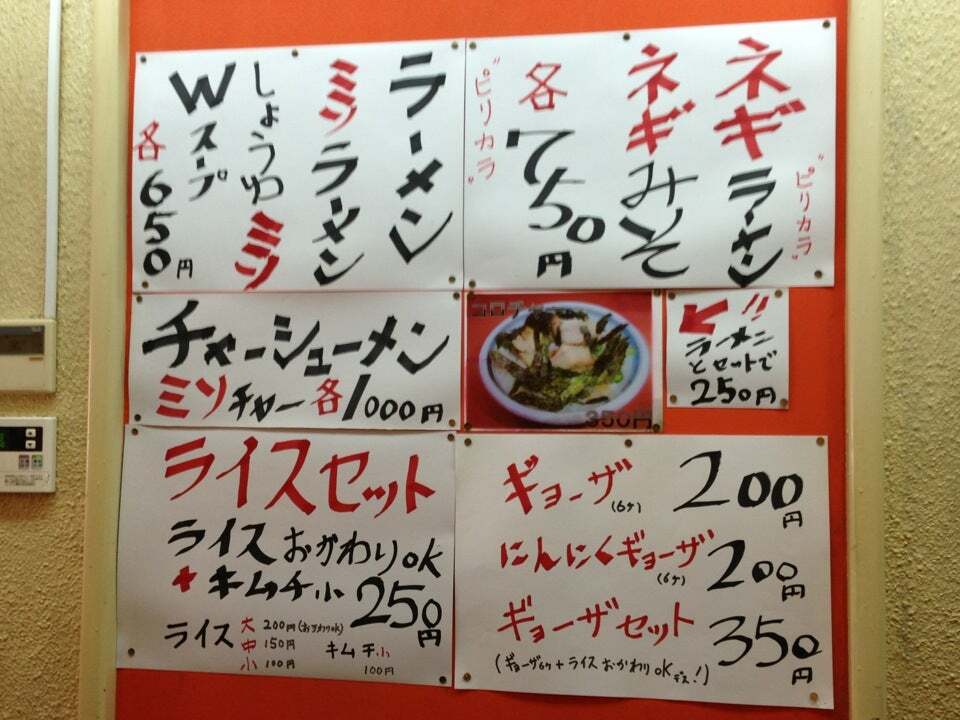 "ピリカラ"
ネギラーメン
ネギみそ
各750円
"ピリカラ"
ラーメン
ミソラーメン
しょうゆミソ
Wスープ
各650円
チャーシューメン
ミソチャー各1000円
コロチャー
350円
↙!!
ラーメン
とセットで
250円
ライスセット
ライスおかわりOK
+キムチ小 250円
ライス 大 200円(おかわりOK)
中 150円
小 100円
キムチ小
100円
ギョーザ(6ケ) 200円
にんにくギョーザ(6ケ) 200円
ギョーザセット 350円
(ギョーザ6ケ+ライスおかわりOKデス!)